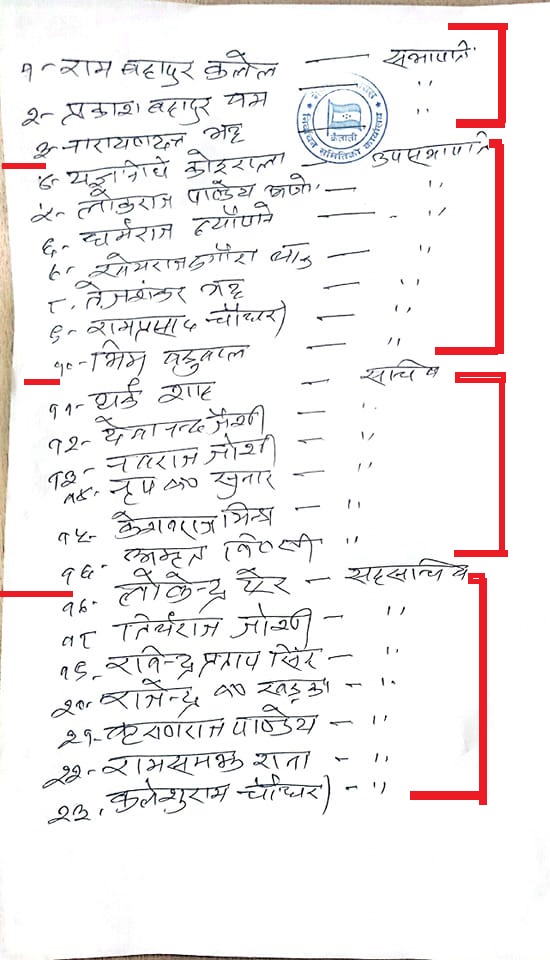 १- राम बहादुर कलेल — सभापति
२- प्रकाश बहादुर बम — "
३- नारायणदत्त भट्ट — "
४- यज्ञनिधि कोइराला — उपसभापति
५- लोकराज पाण्डेय — "
६- धर्मराज न्यौपाने — "
७- खेमराज — "
८. तेजशंकर भट्ट — "
९- रामप्रसाद चौधरी — "
१०- भिम बडुवाल — "
११- शाह — सचिव
१२- जैशी — "
१३- नवराज जोशी — "
१४- सुनार — "
१५- केशवराज मिश्र — "
१६- अमृत — "
१७- लोकेन्द्र सेर — सहसचिव
१८ तिर्थराज जोशी — "
१९- रविन्द्र प्रताप सिंह — "
२०- राजेन्द्र ब० खड्का — "
२१- पाण्डेय — "
२२- रामसमझ राना — "
२३. कलेशुराम चौधरी — "
निर्वाचन समितिको कार्यालय
कैलाली